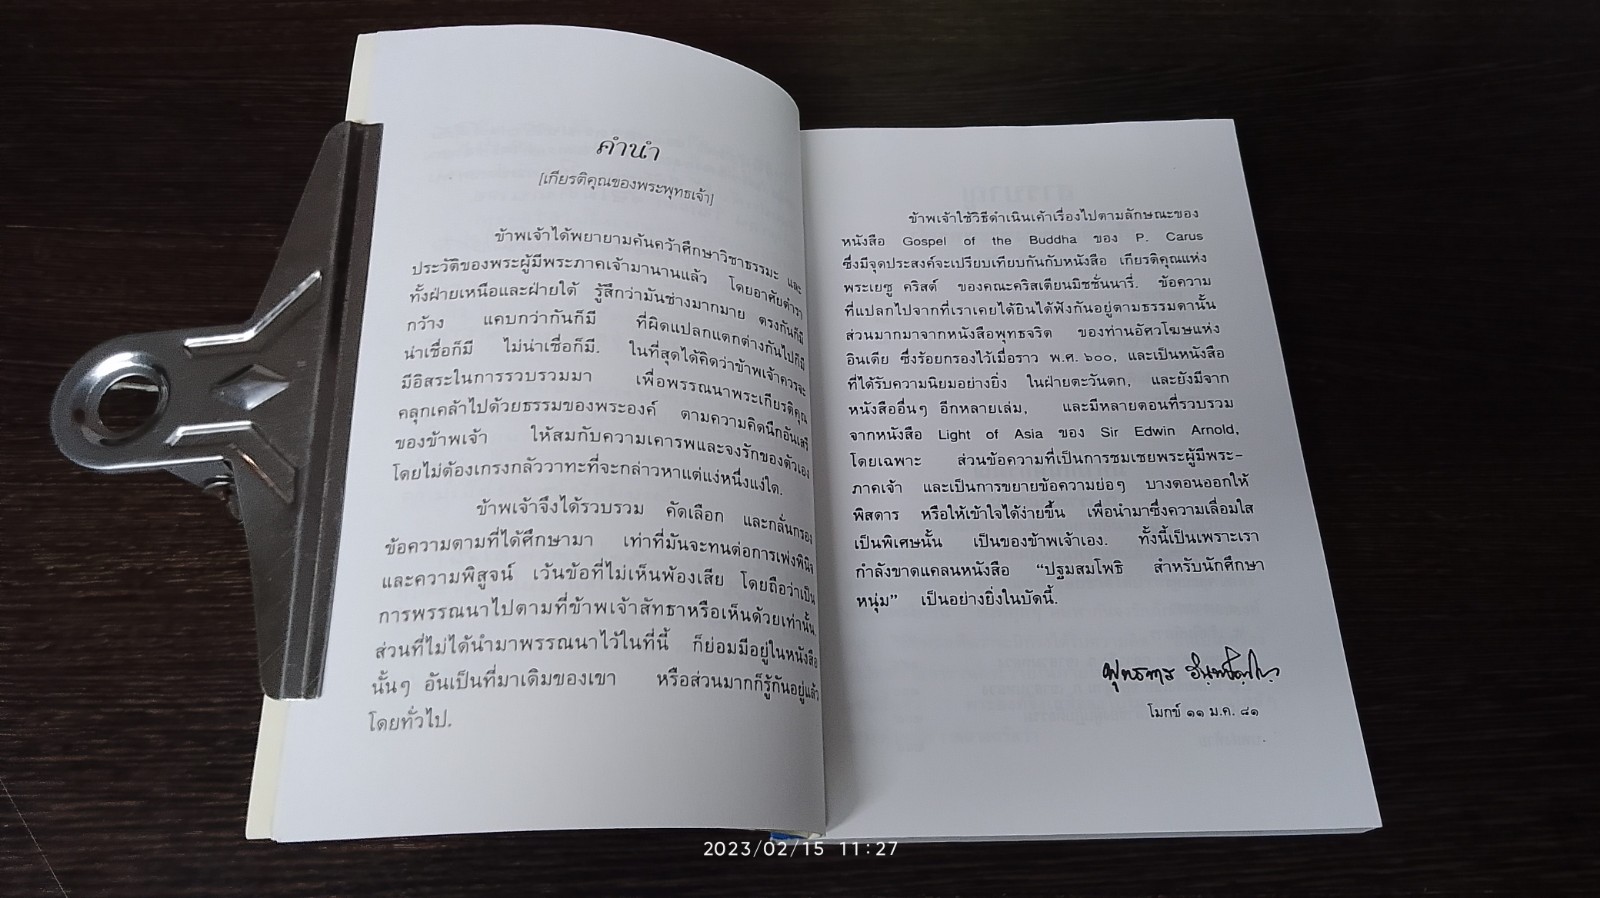 คำนำ
[เกียรติคุณของพระพุทธเจ้า]
ข้าพเจ้าได้พยายามค้นคว้าศึกษาวิชาธรรมะ และ
ประวัติของพระผู้มีพระภาคเจ้ามานานแล้ว โดยอาศัยตำรา
ทั้งฝ่ายเหนือและฝ่ายใต้ รู้สึกว่ามันช่างมากมาย ตรงกันก็มี
กว้าง แคบกว่ากันก็มี ที่ผิดแปลกแตกต่างกันไปก็มี
น่าเชื่อก็มี ไม่น่าเชื่อก็มี. ในที่สุดได้คิดว่าข้าพเจ้าควรจะ
มีอิสระในการรวบรวมมา เพื่อพรรณนาพระเกียรติคุณ
คลุกเคล้าไปด้วยธรรมของพระองค์ ตามความคิดนึกอันเสรี
ของข้าพเจ้า ให้สมกับความเคารพและจงรักของตัวเอง
โดยไม่ต้องเกรงกลัววาทะที่จะกล่าวหาแต่แง่หนึ่งแง่ใด.
ข้าพเจ้าจึงได้รวบรวม คัดเลือก และกลั่นกรอง
ข้อความตามที่ได้ศึกษามา เท่าที่มันจะทนต่อการเพ่งพินิจ
และความพิสูจน์ เว้นข้อที่ไม่เห็นพ้องเสีย โดยถือว่าเป็น
การพรรณนาไปตามที่ข้าพเจ้าสัทธาหรือเห็นด้วยเท่านั้น.
ส่วนที่ไม่ได้นำมาพรรณนาไว้ในที่นี้ ก็ย่อมมีอยู่ในหนังสือ
นั้นๆ อันเป็นที่มาเดิมของเขา หรือส่วนมากก็รู้กันอยู่แล้ว
โดยทั่วไป.
ข้าพเจ้าใช้วิธีดำเนินเค้าเรื่องไปตามลักษณะของ
หนังสือ Gospel of the Buddha ของ P. Carus
ซึ่งมีจุดประสงค์จะเปรียบเทียบกันกับหนังสือ เกียรติคุณแห่ง
พระเยซู คริสต์ ของคณะคริสเตียนมิชชั่นนารี่. ข้อความ
ที่แปลกไปจากที่เราเคยได้ยินได้ฟังกันอยู่ตามธรรมดานั้น
ส่วนมากมาจากหนังสือพุทธจริต ของท่านอัศวโฆษแห่ง
อินเดีย ซึ่งร้อยกรองไว้เมื่อราว พ.ศ. ๖๐๐, และเป็นหนังสือ
ที่ได้รับความนิยมอย่างยิ่ง ในฝ่ายตะวันตก, และยังมีจาก
หนังสืออื่นๆ อีกหลายเล่ม, และมีหลายตอนที่รวบรวม
จากหนังสือ Light of Asia ของ Sir Edwin Arnold,
โดยเฉพาะ ส่วนข้อความที่เป็นการชมเชยพระผู้มีพระ-
ภาคเจ้า และเป็นการขยายข้อความย่อๆ บางตอนออกให้
พิสดาร หรือให้เข้าใจได้ง่ายขึ้น เพื่อนำมาซึ่งความเลื่อมใส
เป็นพิเศษนั้น เป็นของข้าพเจ้าเอง. ทั้งนี้เป็นเพราะเรา
กำลังขาดแคลนหนังสือ “ปฐมสมโพธิ สำหรับนักศึกษา
หนุ่ม” เป็นอย่างยิ่งในบัดนี้.
พุทธทาส อินฺทปญฺโญ
โมกข์ ๑๑ ม.ค. ๘๑
2023/02/15 11:27